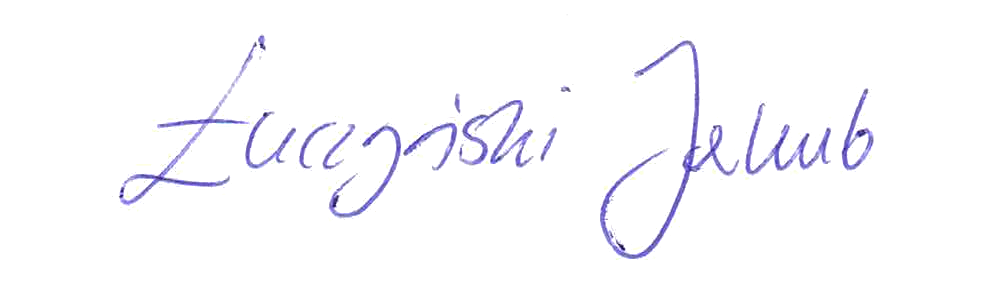 Łuczyński Jakub